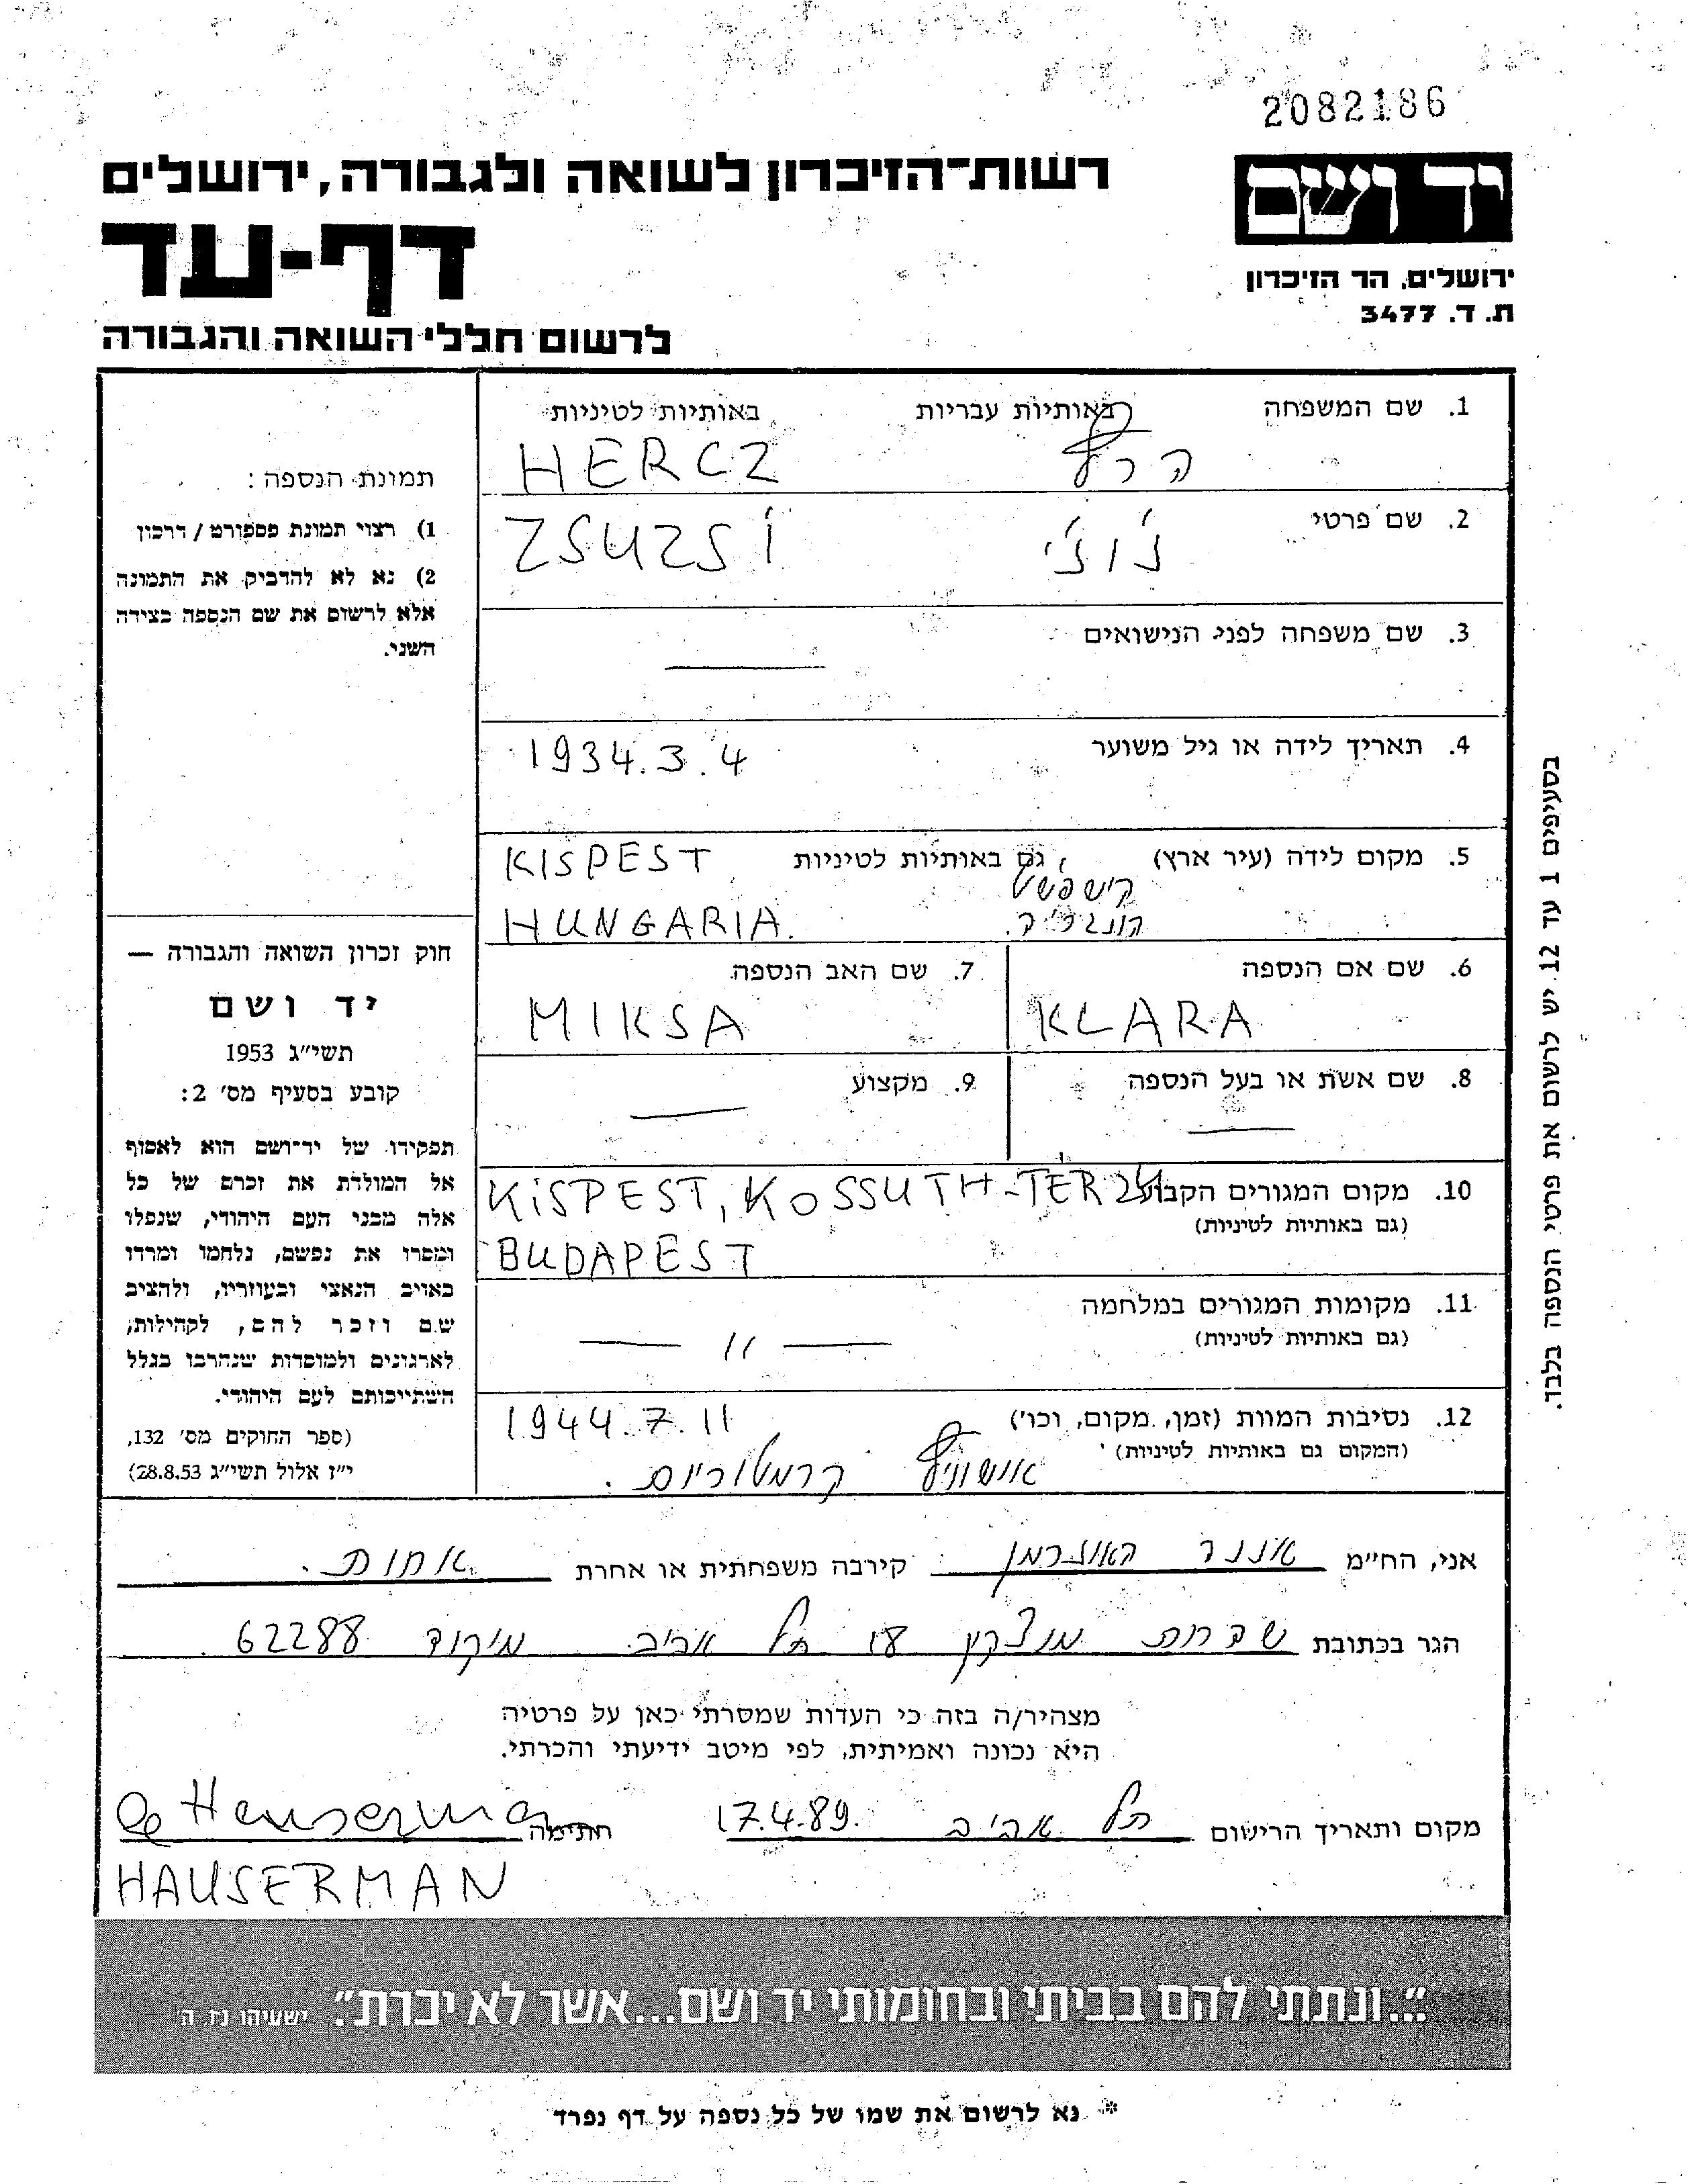 2082186
יד ושם
רשות־הזיכרון לשואה ולגבורה, ירושלים
דף-עד
ירושלים, הר הזיכרון
ת. ד. 3477
לרשום חללי השואה והגבורה
1. שם המשפחה באותיות עבריות באותיות לטיניות
הרץ HERCZ
2. שם פרטי
ז'וז'י ZSUZSI
3. שם משפחה לפני הנישואים
—
4. תאריך לידה או גיל משוער
1934.3.4
5. מקום לידה (עיר ארץ), גם באותיות לטיניות KISPEST
קישפשט
הונגריה. HUNGARIA.
6. שם אם הנספה
KLARA
7. שם האב הנספה
MIKSA
8. שם אשת או בעל הנספה
—
9. מקצוע
—
10. מקום המגורים הקבוע KISPEST, KOSSUTH-TER 24
(גם באותיות לטיניות)
BUDAPEST
11. מקומות המגורים במלחמה
(גם באותיות לטיניות)
— 11 —
12. נסיבות המוות (זמן, מקום, וכו') 1944.7.11
(המקום גם באותיות לטיניות)
אושוויץ קרמטוריום.
תמונת הנספה:
1) רצוי תמונת פספורט / דרכון
2) נא לא להדביק את התמונה
אלא לרשום את שם הנספה בצידה
השני.
חוק זכרון השואה והגבורה —
יד ושם
תשי"ג 1953
קובע בסעיף מס' 2:
תפקידו של יד־ושם הוא לאסוף
אל המולדת את זכרם של כל
אלה מבני העם היהודי, שנפלו
ומסרו את נפשם, נלחמו ומרדו
באויב הנאצי ובעוזריו, ולהציב
שם וזכר להם, לקהילות,
לארגונים ולמוסדות שנהרבו בגלל
השתייכותם לעם היהודי.
(ספר החוקים מס' 132,
י"ז אלול תשי"ג 28.8.53)
בסעיפים 1 עד 12 יש לרשום את פרטי הנספה בלבד.
אני, הח"מ האוזרמן קירבה משפחתית או אחרת אחות.
הגר בכתובת שדרות 18 תל אביב. מיקוד 62288.
מצהיר/ה בזה כי העדות שמסרתי כאן על פרטיה
היא נכונה ואמיתית, לפי מיטב ידיעתי והכרתי.
מקום ותאריך הרישום תל אביב 17.4.89. חתימה
HAUSERMAN
"...ונתתי להם בביתי ובחומותי יד ושם...אשר לא יכרת". ישעיהו נז, ה
* נא לרשום את שמו של כל נספה על דף נפרד